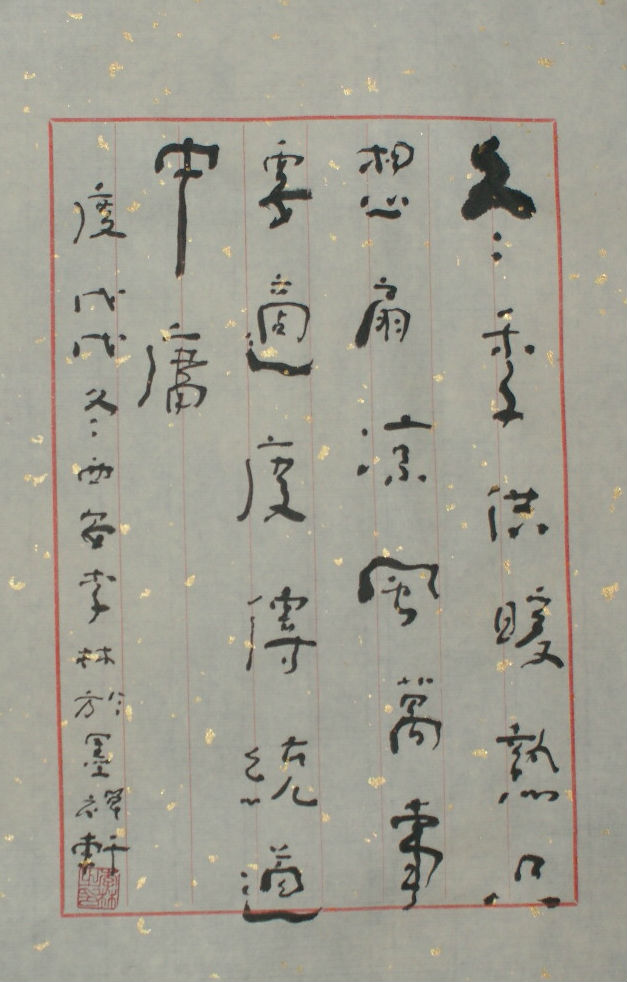 冬季供暖熱只
想扇涼風萬事
適度傳統道
中庸
度 戊戌冬西安李林於墨禪軒